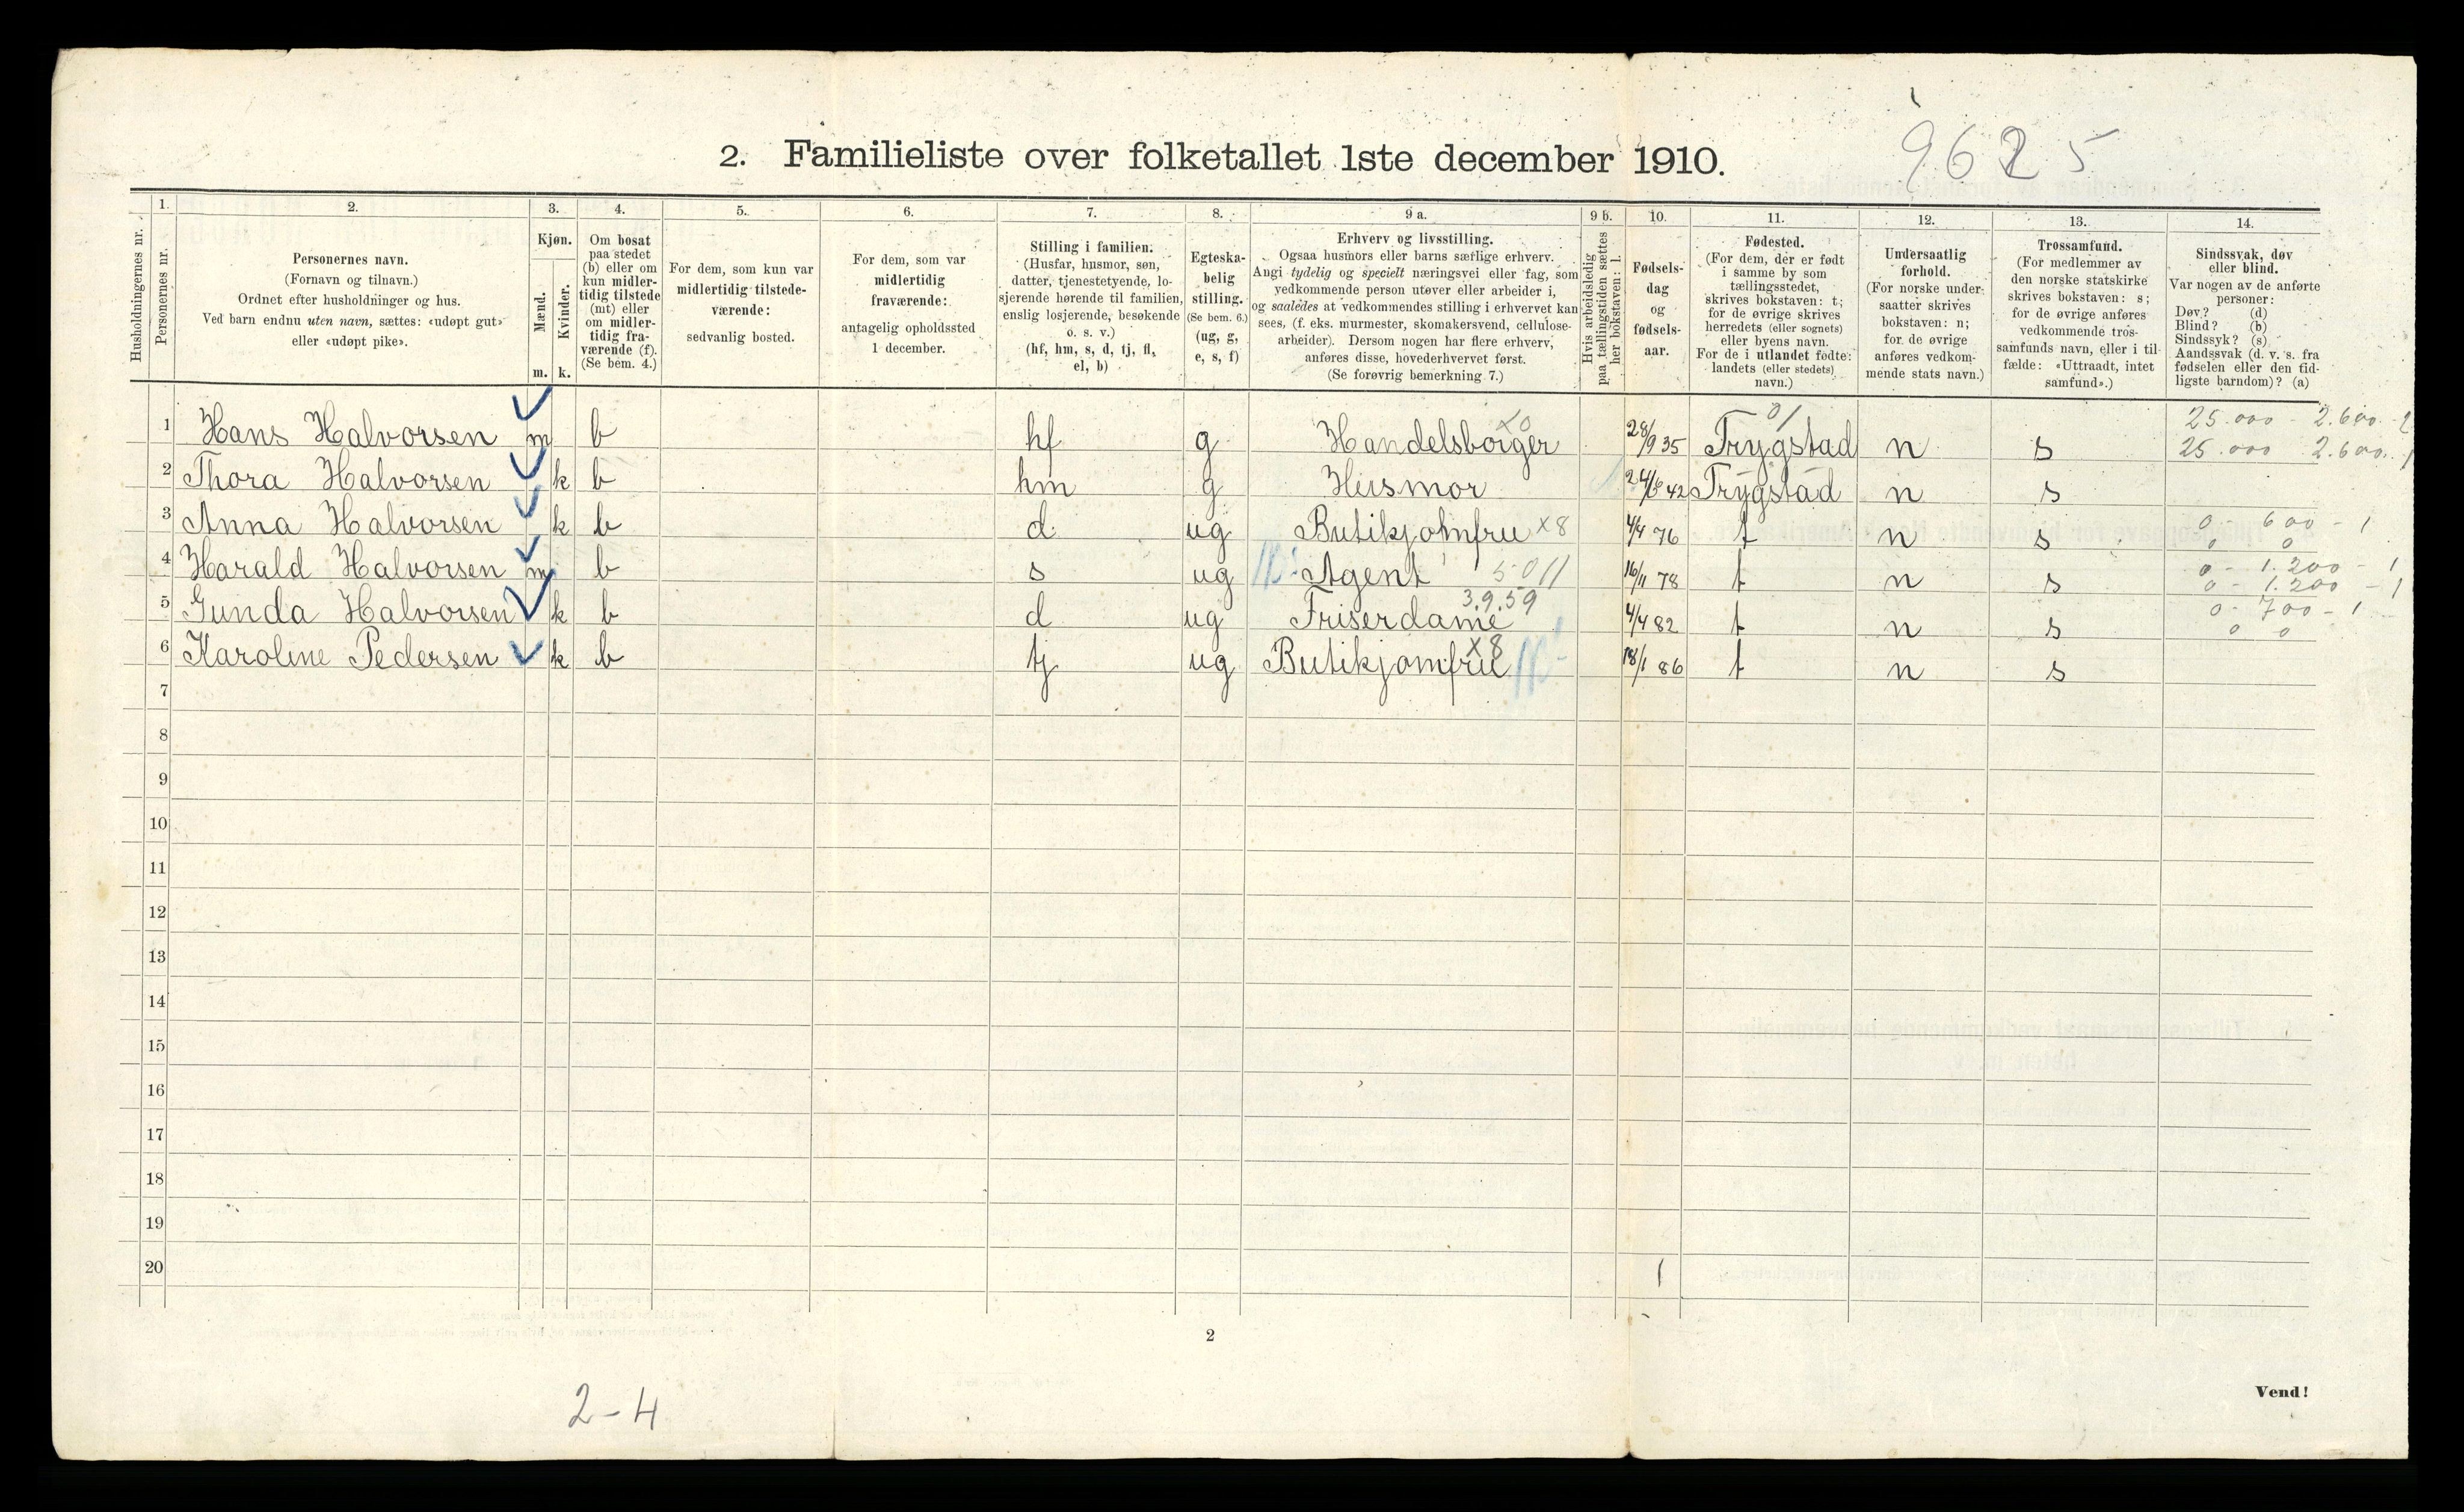 2. Familieliste over folketallet 1ste december 1910.
9625
Husholdningernes nr.
1.
Personernes nr.
2.
Personernes navn.
(Fornavn og tilnavn.)
Ordnet efter husholdninger og hus.
Ved barn endnu uten navn, sættes: «udøpt gut»
eller «udøpt pike».
3.
Kjøn.
Mænd.
Kvinder.
m. k.
4.
Om bosat
paa stedet
(b) eller om
kun midler-
tidig tilstede
(mt) eller
om midler-
tidig fra-
værende (f).
(Se bem. 4.)
5.
For dem, som kun var
midlertidig tilstede-
værende:
sedvanlig bosted.
6.
For dem, som var
midlertidig
fraværende:
antagelig opholdssted
1 december.
7.
Stilling i familien.
(Husfar, husmor, søn,
datter, tjenestetyende, lo-
sjerende hørende til familien,
enslig losjerende, besøkende
o. s. v.)
(hf, hm, s, d, tj, fl,
el, b)
8.
Egteska-
belig
stilling.
(Se bem. 6.)
(ug, g,
e, s, f)
9 a.
Erhverv og livsstilling.
Ogsaa husmors eller barns særlige erhverv.
Angi tydelig og specielt næringsvei eller fag, som
vedkommende person utøver eller arbeider i,
og saaledes at vedkommendes stilling i erhvervet kan
sees, (f. eks. murmester, skomakersvend, cellulose-
arbeider). Dersom nogen har flere erhverv,
anføres disse, hovederhvervet først.
(Se forøvrig bemerkning 7.)
9 b.
Hvis arbeidsledig
paa tællingstiden sættes
her bokstaven: l.
10.
Fødsels-
dag
og
fødsels-
aar.
11.
Fødested.
(For dem, der er født
i samme by som
tællingsstedet,
skrives bokstaven: t;
for de øvrige skrives
herredets (eller sognets)
eller byens navn.
For de i utlandet fødte:
landets (eller stedets)
navn.)
12.
Undersaatlig
forhold.
(For norske under-
saatter skrives
bokstaven: n;
for de øvrige
anføres vedkom-
mende stats navn.)
13.
Trossamfund.
(For medlemmer av
den norske statskirke
skrives bokstaven: s;
for de øvrige anføres
vedkommende tros-
samfunds navn, eller i til-
fælde: «Uttraadt, intet
samfund».)
14.
Sindssvak, døv
eller blind.
Var nogen av de anførte
personer:
Døv? (d)
Blind? (b)
Sindssyk? (s)
Aandssvak (d. v. s. fra
fødselen eller den tid-
ligste barndom)? (a)
1 Hans Halvorsen m b hf g Handelsborger X0 28/9 35 Trygstad 01 n s 25.000 - 2.600 - 2
25.000 2.600. 1
2 Thora Halvorsen k b hm g Husmor 24/6 42 Trygstad n s
3 Anna Halvorsen k b d ug Butikjomfru X8 4/4 76 t n s 0 600 - 1
0 0
4 Harald Halvorsen m b s ug Agent 5011 16/11 78 t n s 0 - 1.200 - 1
0 - 1.200 - 1
5 Gunda Halvorsen k b d ug Friserdame 3.9.59 4/4 82 t n s 0 - 700 - 1
0 0
6 Karoline Pedersen k b tj ug Butikjomfru X8 18/1 86 t n s
7
8
9
10
11
12
13
14
15
16
17
18
19
20
2
Vend!
2-4